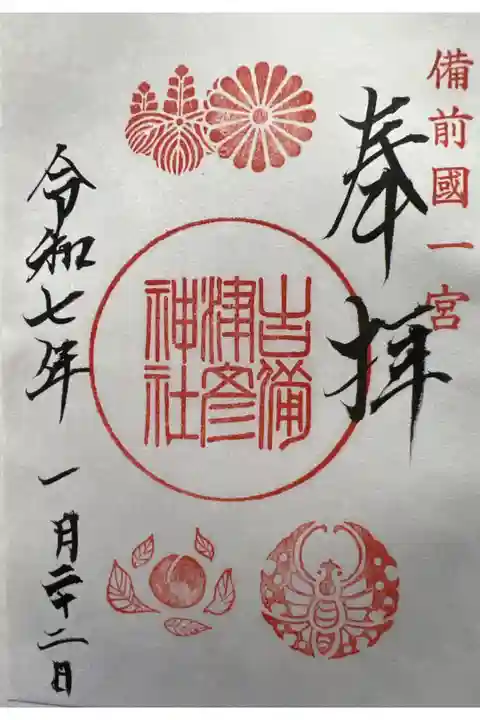 備前國一宮
奉拝
吉備
津彦
神社
令和七年 一月二十二日